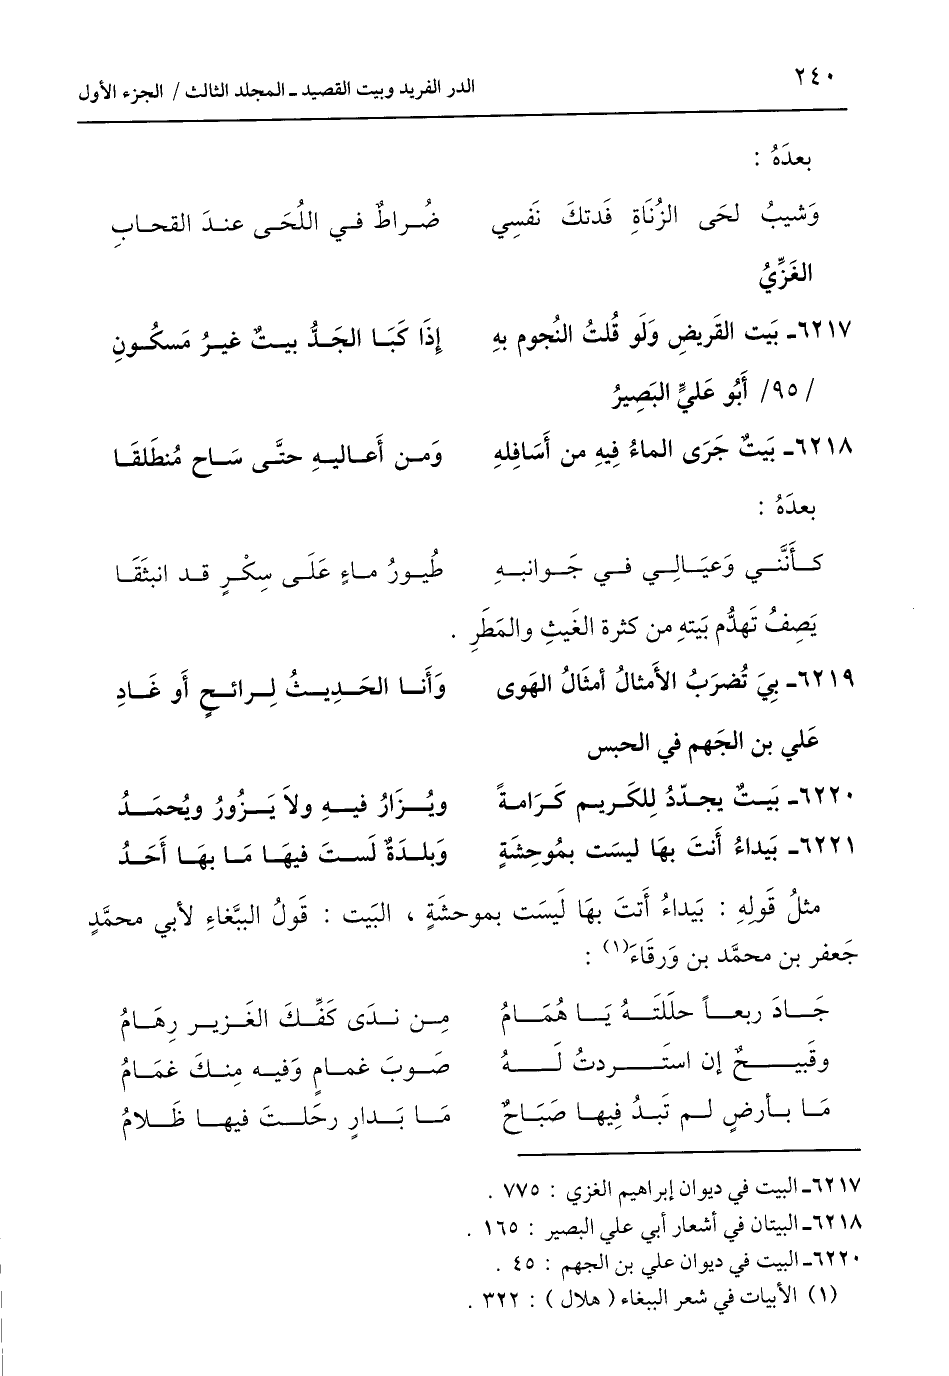 ٢٤٠ الدر الفريد وبيت القصيد ـ المجلد الثالث / الجزء الأول
بعدَهُ :
وَشيبُ لحَى الزُنَاةِ فَدتكَ نَفسِي ضُراطٌ في اللُحَى عندَ القحابِ
الغَزِّيُ
٦٢١٧ـ بَيت القَريضِ وَلَو قُلتُ النُجوم بهِ إذَا كَبَا الجَدُّ بيتٌ غيرُ مَسكُونِ
/ ٩٥/ أَبُو عَليٍّ البَصِيرُ
٦٢١٨ـ بَيتٌ جَرَى الماءُ فِيهِ من أَسَافِلهِ وَمن أَعاليهِ حتَّى سَاح مُنطَلقَا
بعدَهُ :
كأَنَّني وَعيَالِي في جَوانبهِ طُيورُ ماءٍ عَلَى سِكْرٍ قد انبثَقَا
يَصِفُ تَهدُّم بَيتهِ من كثرة الغَيثِ والمَطَرِ .
٦٢١٩ـ بِيَ تُضرَبُ الأَمثالُ أمثَالُ الهَوى وَأنا الحَديثُ لِرائحٍ أَو غَادِ
عَلي بن الجَهم في الحبس
٦٢٢٠ـ بَيتٌ يجدّدُ لِلكَريم كَرَامةً ويُزَارُ فيهِ ولاَ يَزُورُ ويُحمَدُ
٦٢٢١ـ بَيداءُ أَنتَ بهَا ليسَت بمُوحشَةٍ وَبلدَةٌ لَست فيهَا مَا بهَا أَحَدُ
مثلُ قَولِهِ : بَيداءُ أَنتَ بهَا لَيسَت بموحشَةٍ ، البَيت : قَولُ البَّغاءِ لأبي محمَّدٍ
جَعفر بن محمَّد بن وَرقَاءَ(١) :
جَادَ ربعاً حلَلتَهُ يَا هُمَامُ مِن نَدَى كَفِّكَ الغَزيرِ رِهَامُ
وقَبيحٌ إن استَردتُ لَهُ صَوبَ غمامٍ وَفيه مِنكَ غمَامُ
مَا بأرضٍ لم تَبدُ فِيهَا صَبَاحٌ مَا بَدارٍ رحَلتَ فيهَا ظَلامُ
٦٢١٧ـ البيت في ديوان إبراهيم الغزي : ٧٧٥ .
٦٢١٨ـ البيتان في أشعار أبي علي البصير : ١٦٥ .
٦٢٢٠ـ البيت في ديوان علي بن الجهم : ٤٥ .
(١) الأبيات في شعر الببغاء ( هلال ) : ٣٢٢ .